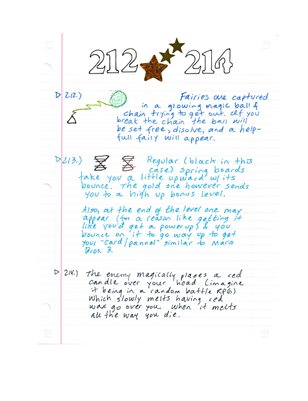 212 214
212.) Fairies are captured
in a glowing magic ball &
chain trying to get out. If you
break the chain the ball will
be set free, disolve, and a help-
full faily will appear.
213.) Regular (black in this
case) spring boards
take you a little upward w/its
bounce. The gold one however sends
you to a high up bonus level.
Also, at the end of the level one may
appear (for a reason like getting it
like you'd get a powerup) & you
bounce on it to go way up to get
your "card/pannel" similar to Mario
Bros. 3.
214.) The enemy magically places a red
candle over your head (imagine
it being in a random battle RPG)
which slowly melts having red
wax go over you. When it melts
all the way you die.